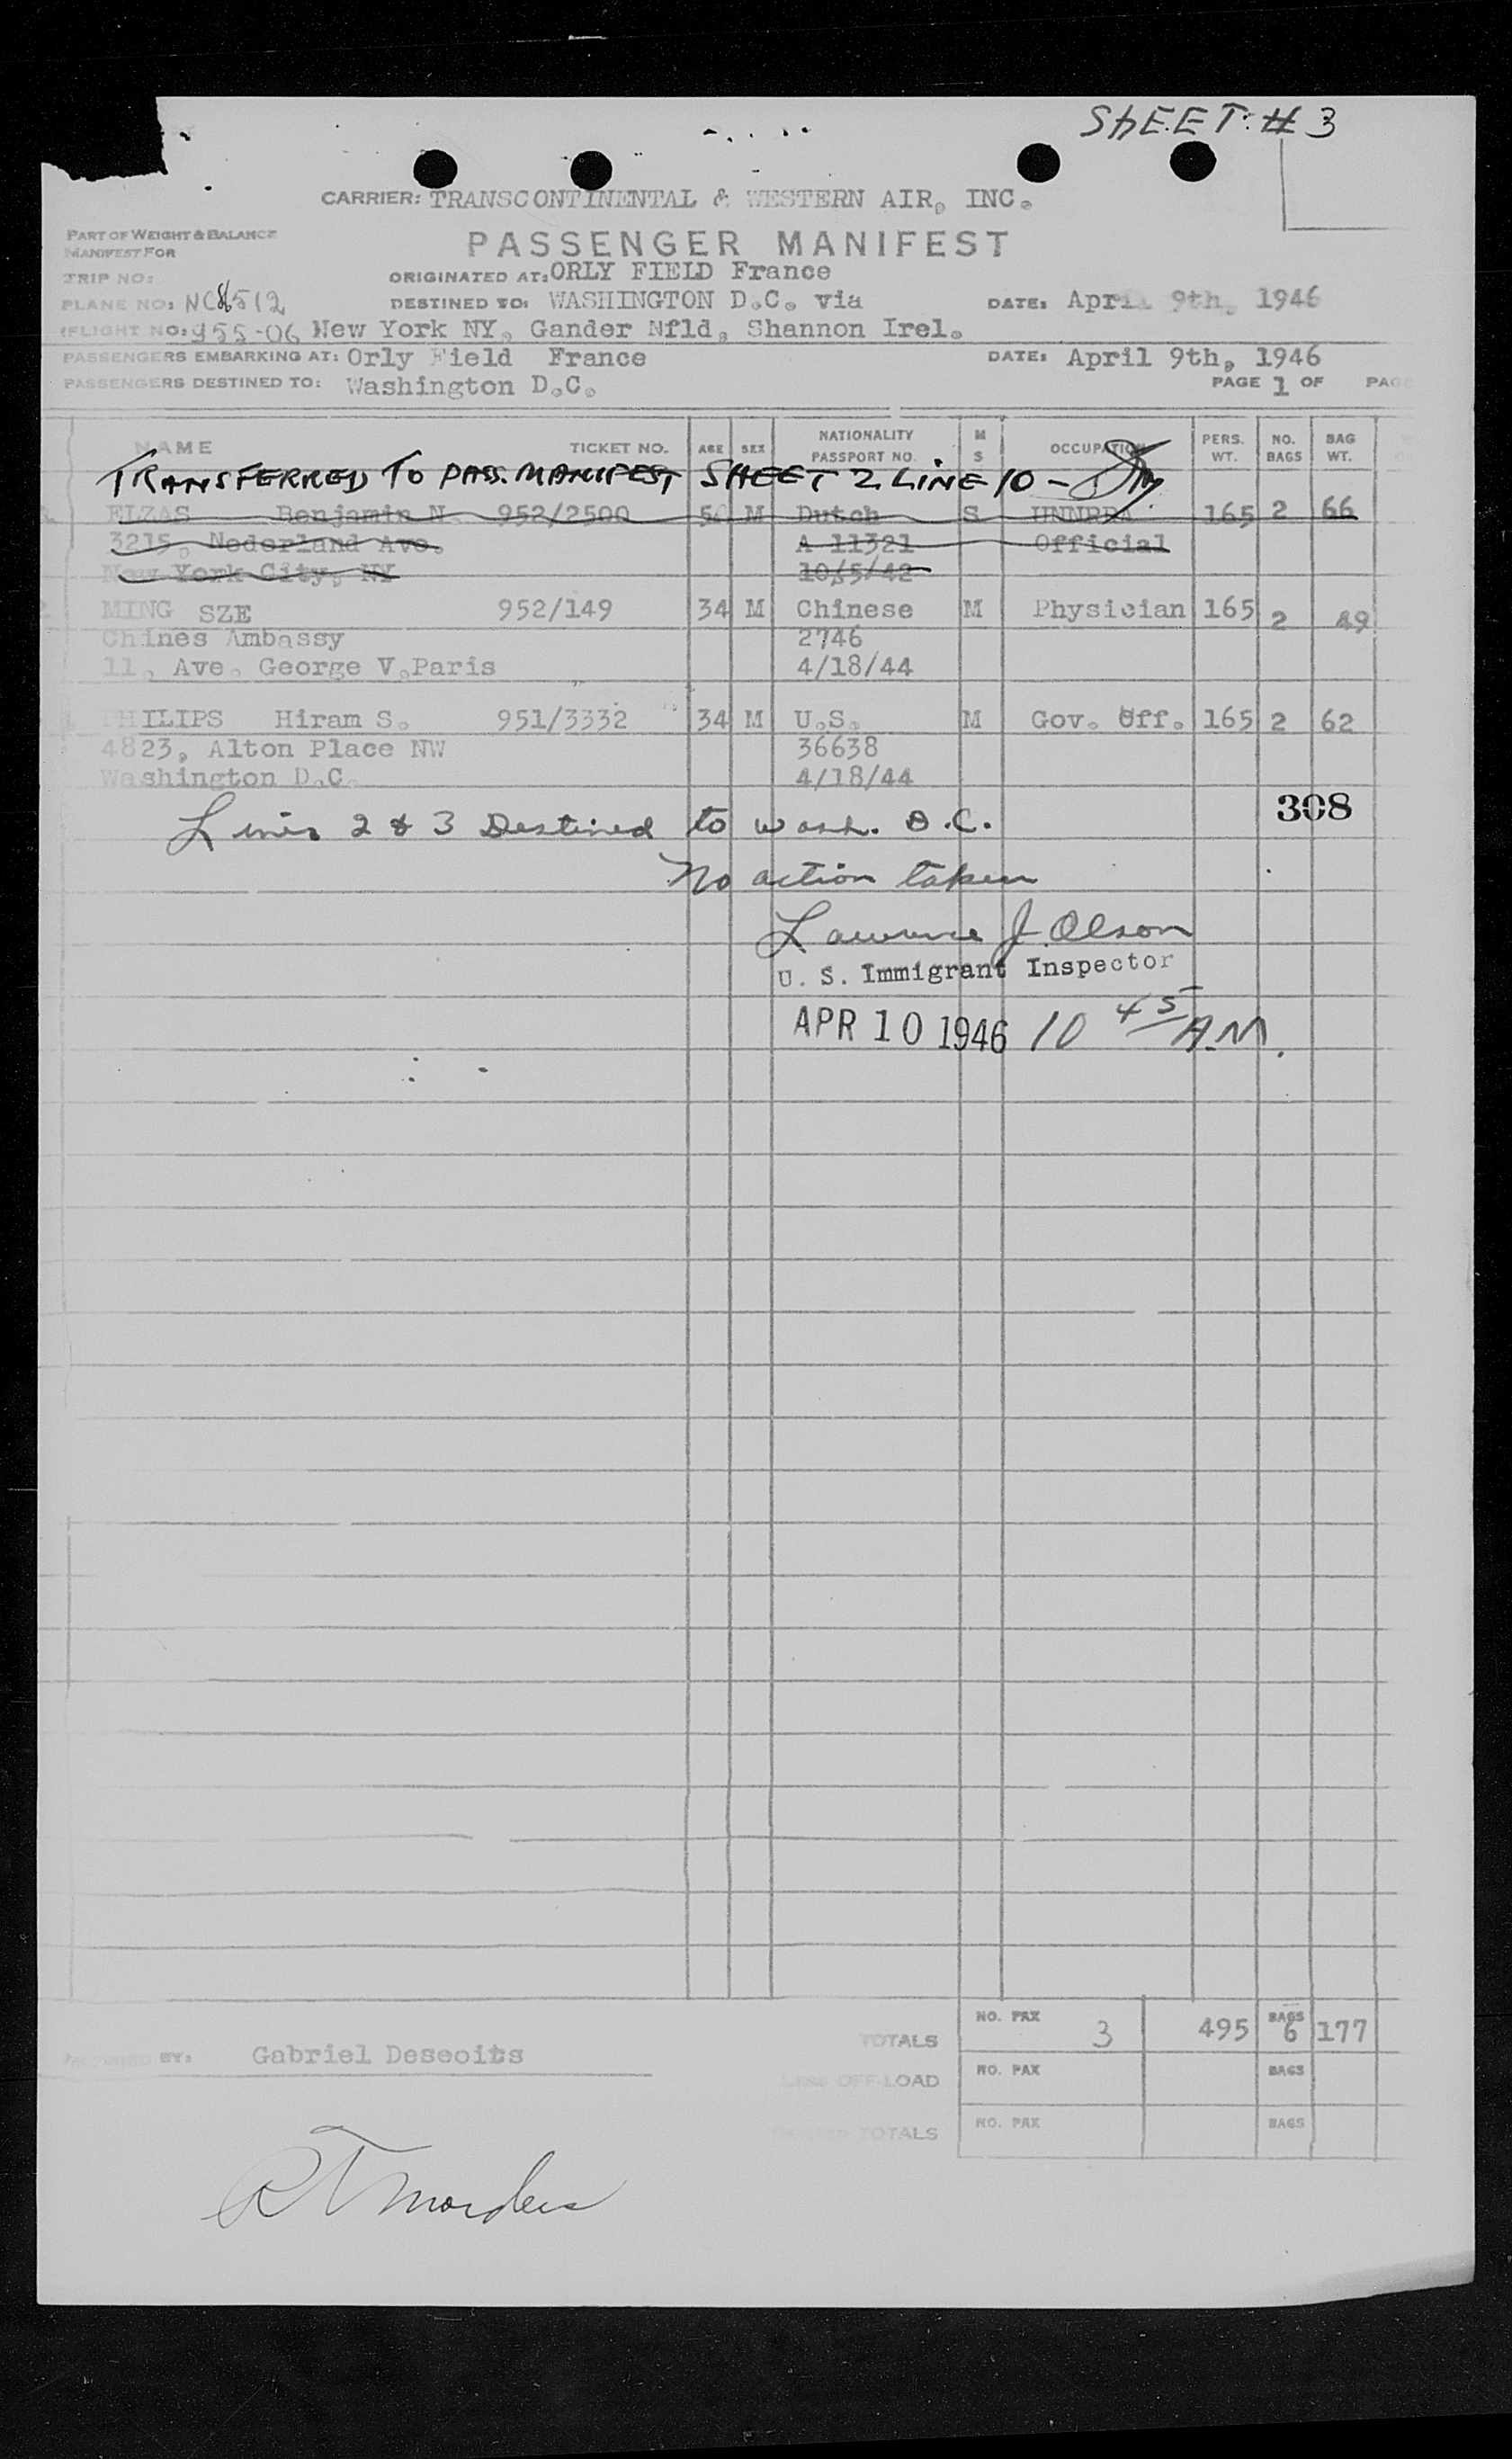 SHEET: # 3
CARRIER: TRANSCONTINENTAL & WESTERN AIR, INC.
PART OF WEIGHT & BALANCE
MANIFEST FOR
PASSENGER MANIFEST
TRIP NO:
ORIGINATED AT: ORLY FIELD France
PLANE NO:
DESTINED TO: WASHINGTON D.C. via
DATE: April 9th, 1946
FLIGHT NO: 955-06 New York NY, Gander Nfld, Shannon Irel.
PASSENGERS EMBARKING AT: Orly Field France
DATE: April 9th, 1946
PASSENGERS DESTINED TO: Washington D.C.
PAGE 1 OF PAGE
NAME TICKET NO. AGE SEX NATIONALITY PASSPORT NO. M S OCCUPATION PERS. WT. NO. BAGS BAG WT.
TRANSFERRED TO PASS. MANIFEST SHEET 2 LINE 10 -
ELZAS Benjamin N. 952/2500 M Dutch S UNNRRA 165 2 66
3215, Nederland Ave. A 11321 Official
New York City, NY 10/5/42
MING SZE 952/149 34 M Chinese M Physician 165 2 49
Chines Ambassy 2746
11, Ave. George V.Paris 4/18/44
PHILIPS Hiram S. 951/3332 34 M U.S. M Gov. Off. 165 2 62
4823, Alton Place NW 36638
Washington D.C. 4/18/44
308
Lines 2 & 3 Destined to Wash. D.C.
No action taken
Lawrence J. Olson
U. S. Immigrant Inspector
APR 10 1946 10 45 A.M.
TOTALS NO. PAX 3 495 BAGS 6 177
BY: Gabriel Deseoits
LESS OFF-LOAD NO. PAX BAGS
TOTALS NO. PAX BAGS